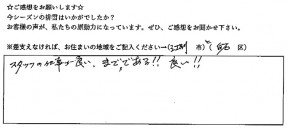 ☆ご感想をお願いします☆
今シーズンの排雪はいかがでしたか?
お客様の声が、私たちの原動力になっています。ぜひ、ご感想をお聞かせ下さい。
※差支えなければ、お住まいの地域をご記入ください→( 市)( 区)
スタッフの仕事が良い、まてである!! 良い!!